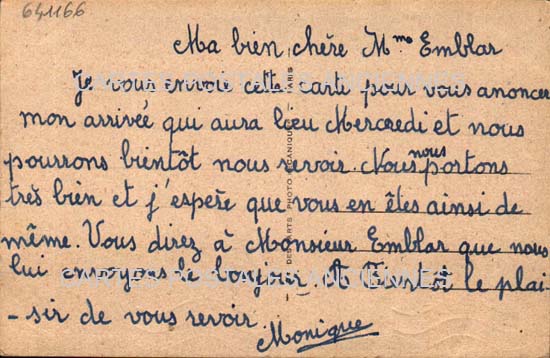 641166
Ma bien chère Mme Emblar
Je vous envoie cette carte pour vous anoncer
mon arrivée qui aura lieu Mercredi et nous
pourrons bientôt nous revoir. Nous nous portons
très bien et j'espère que vous en êtes ainsi de
même. Vous direz à Monsieur Emblar que nous
lui envoyons le bonjour. A bientôt le plai-
-sir de vous revoir
Monique
CARTES POSTALES ANCIENNES
CARTES POSTALES ANCIENNES
PHOTO-MÉCANIQUES - PARIS